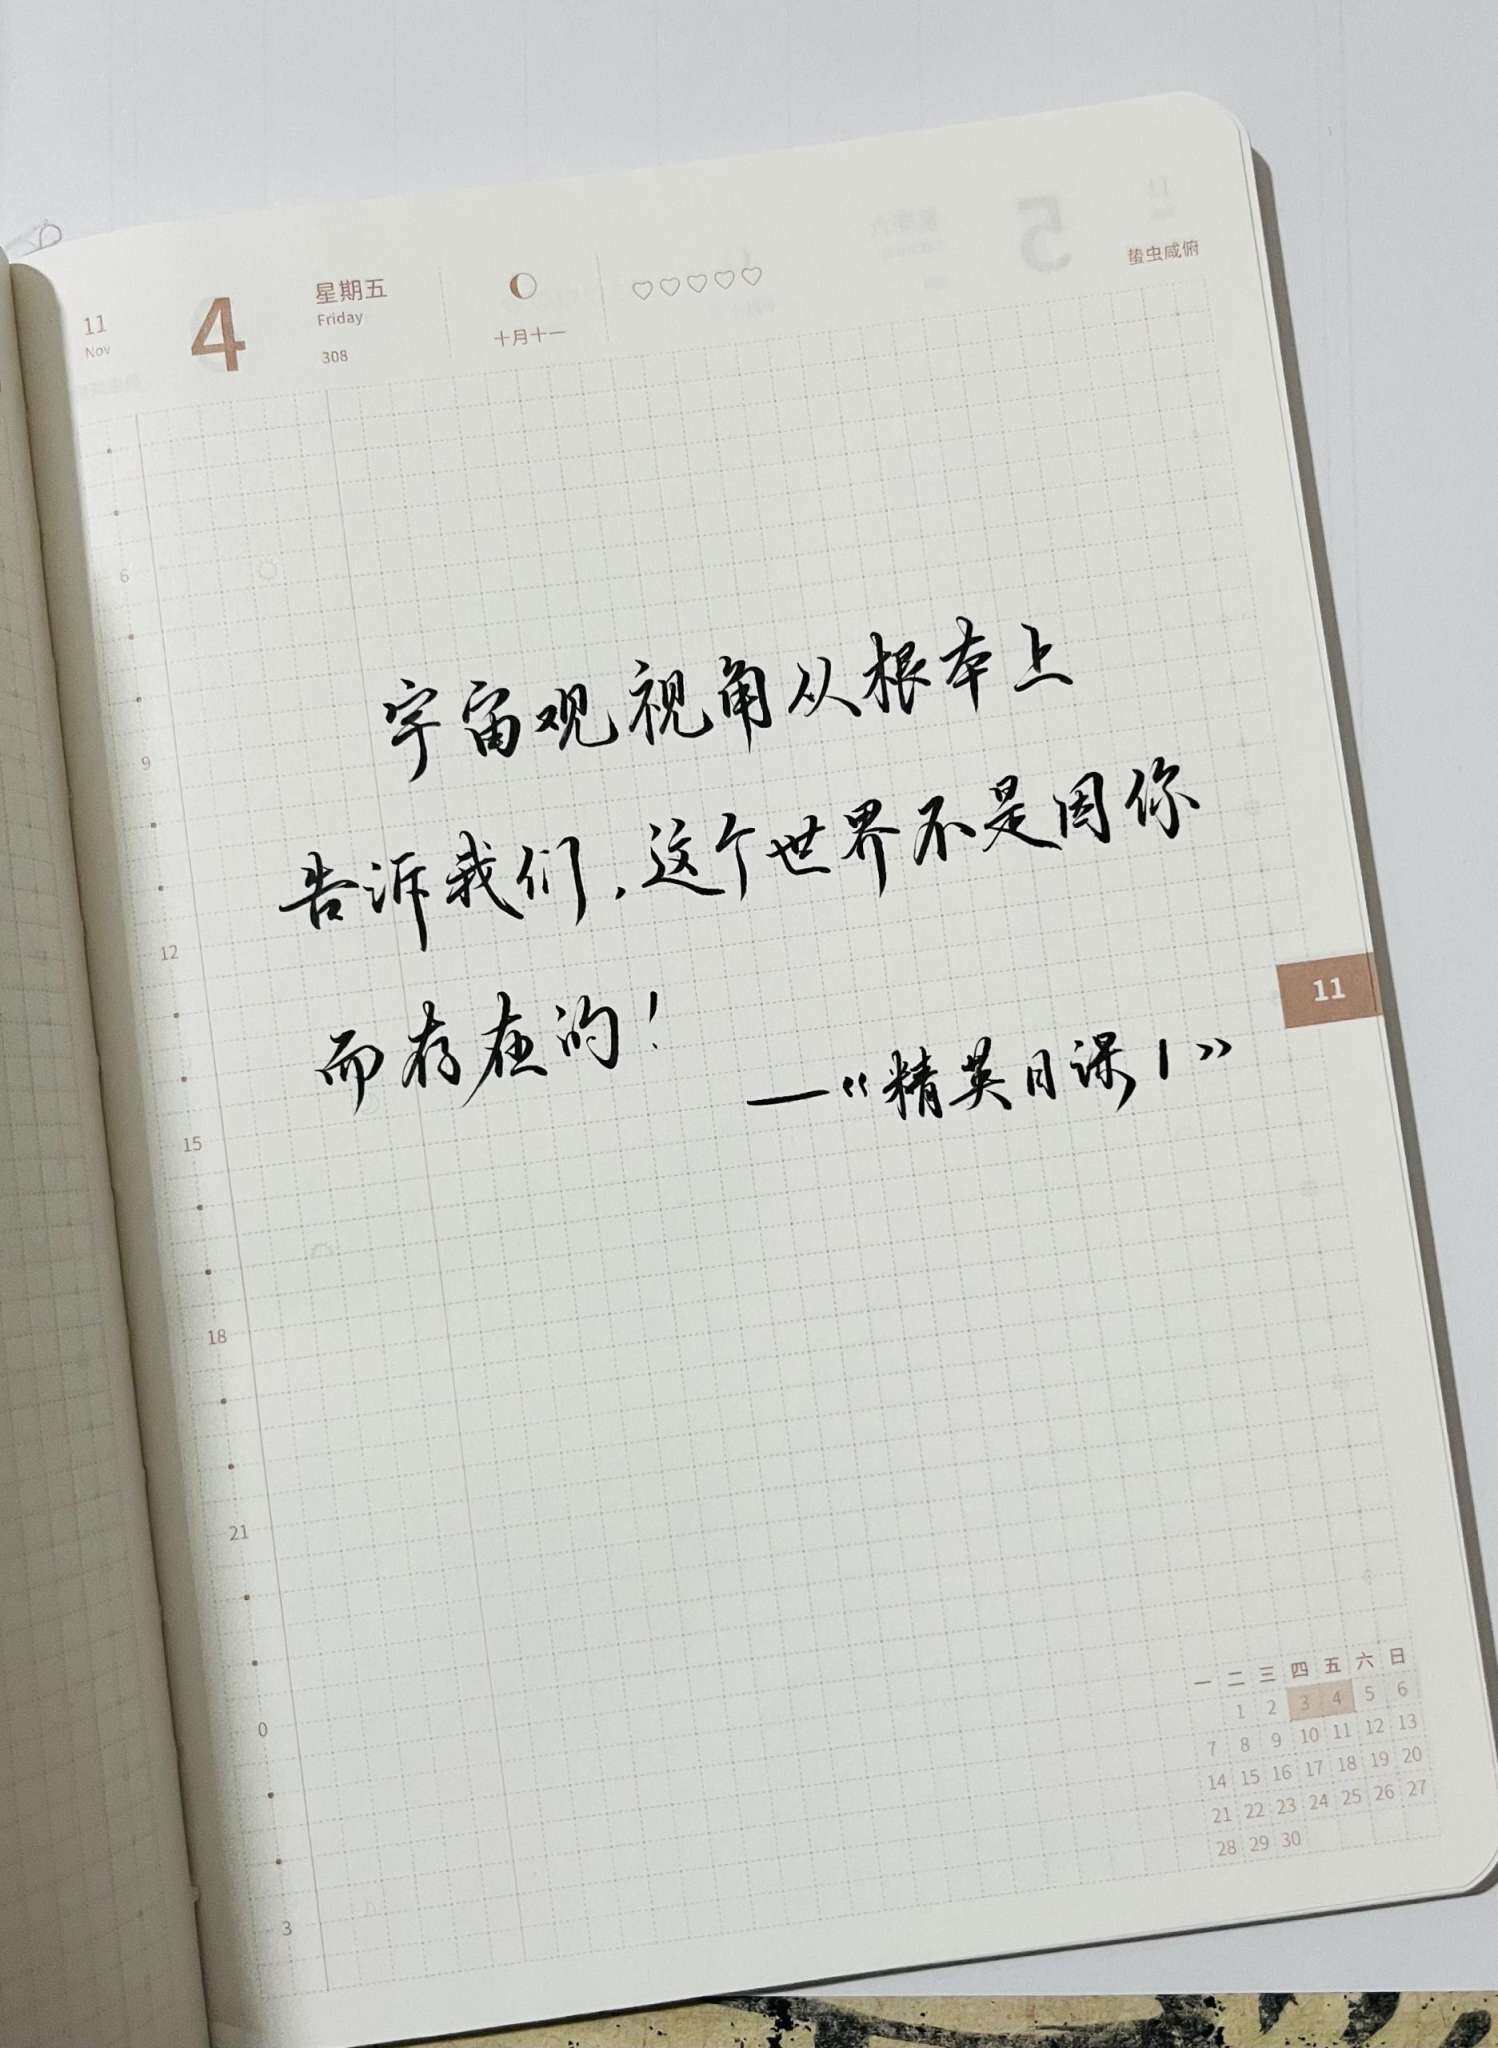 11
Nov
4
星期五
Friday
308
十月十一
蛰虫咸俯
6
9
12
15
18
21
0
3
宇宙观视角从根本上
告诉我们，这个世界不是因你
而存在的！
——《精英日课1》
11
一 二 三 四 五 六 日
1 2 3 4 5 6
7 8 9 10 11 12 13
14 15 16 17 18 19 20
21 22 23 24 25 26 27
28 29 30